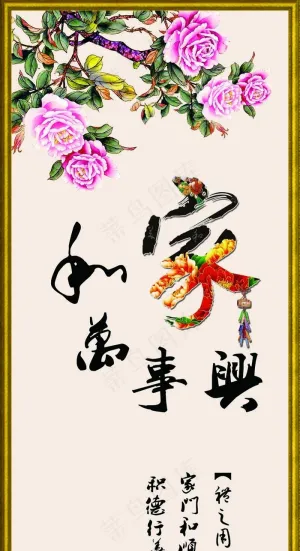 家和萬事興
【禮之用
家門和順
积德行善